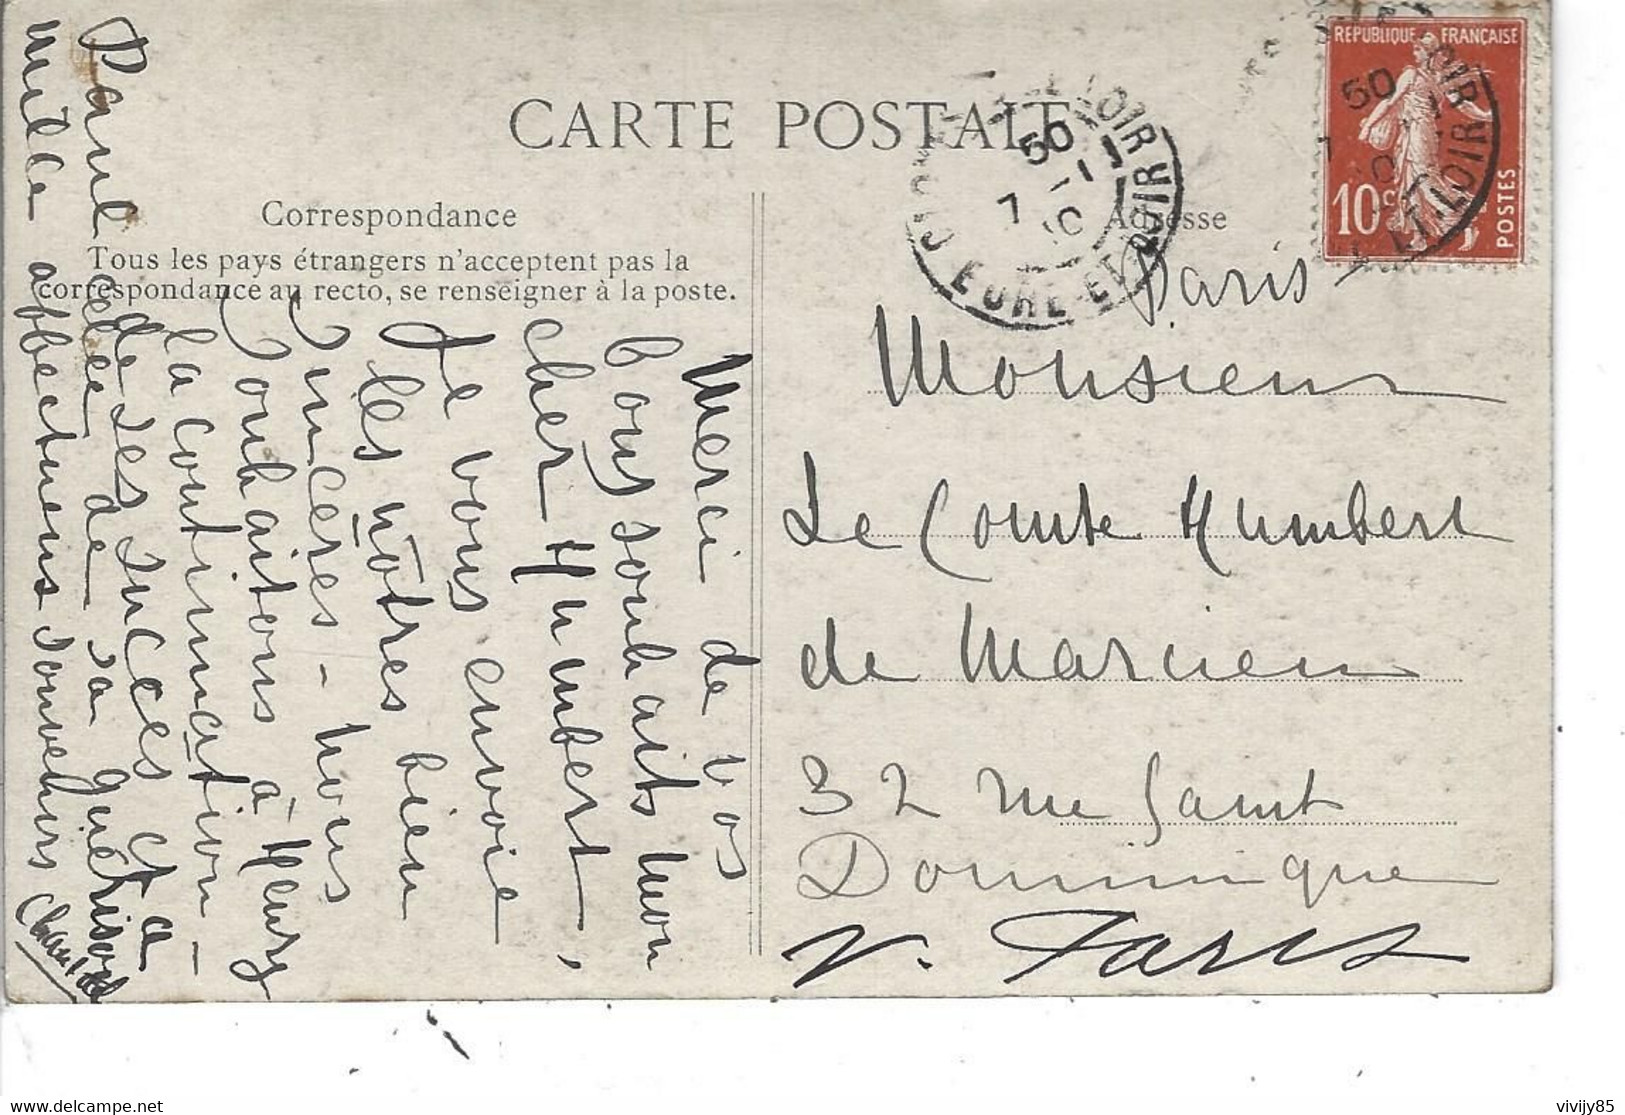 CARTE POSTALE
Correspondance
Tous les pays étrangers n'acceptent pas la
correspondance au recto, se renseigner à la poste.
Adresse
REPUBLIQUE FRANÇAISE
10c
POSTES
50
7 - 1
10
EURE-ET-LOIR
50
ET-LOIR
Merci de vos
bons souhaits mon
cher Humbert,
Je vous envoie
les nôtres bien
sincères - nous
souhaitons à Henry
la continuation -
de ses succès et à
Paul celle de sa guérison
mille affectueux souvenirs
Paris
Monsieur
Le Comte Humbert
de
32 rue Saint
Dominique
v. Paris
vivijy85